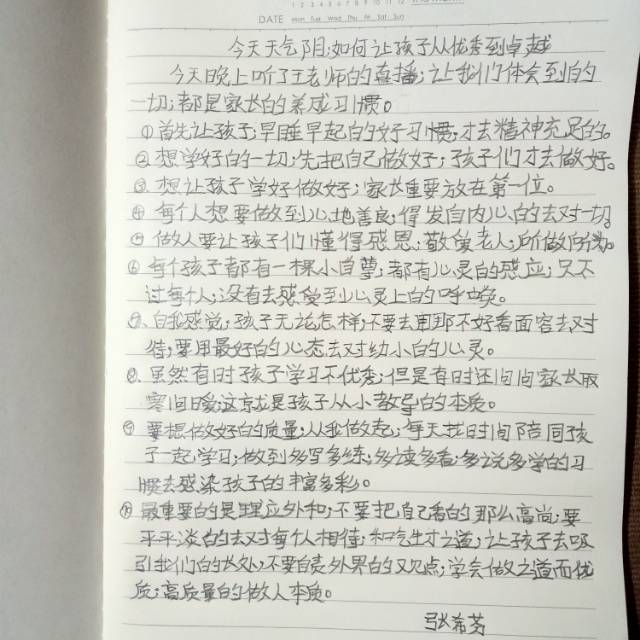 DATE Mon Tue Wed Thu Fri Sat Sun
今天天气阴:如何让孩子从优秀到卓越
今天晚上听了王老师的直播;让我们体会到的
一切;都是家长的养成习惯。
①首先让孩子;早睡早起的好习惯;才去精神充足的。
②想学好的一切;先把自己做好;孩子们才去做好。
③想让孩子学好做好;家长重要放在第一位。
④每个人想要做到心地善良;得发自内心的去对一切。
⑤做人要让孩子们懂得感恩;敬爱老人;所做所为。
⑥每个孩子都有一棵小自尊;都有心灵的感应;只不
过每个人;没有去感受到心灵上的呼唤。
⑦、自我感觉;孩子无论怎样;不要去用那不好看面容去对
待;要用最好的心态去对幼小的心灵。
⑧虽然有时孩子学习不优秀;但是有时还问问家长取
寒问暖;这就是孩子从小教导的本质。
⑨要想做好的质量;从我做起;每天找时间陪同孩
子一起学习;做到多写多练;多读多看;多说多学的习
惯去感染孩子的丰富多彩。
⑩最重要的是理应外和;不要把自己看的那么高尚;要
平平淡淡的去对每个人相待;和气生才之道;让孩子去吸
引我们的长处;不要自卖外界的又欠点;学会做之道而优
质;高质量的做人本质。
张希芬